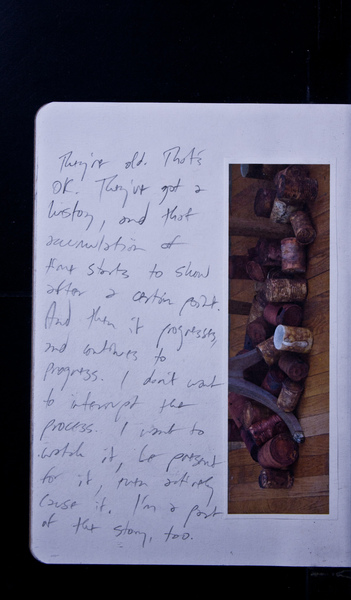 They're old. That's
OK. They've got a
history, and that
accumulation of
time starts to show
after a certain point.
And then it progresses,
and continues to
progress. I don't want
to interrupt the
process. I want to
watch it, be present
for it, even actively
cause it. I'm a part
of the story, too.